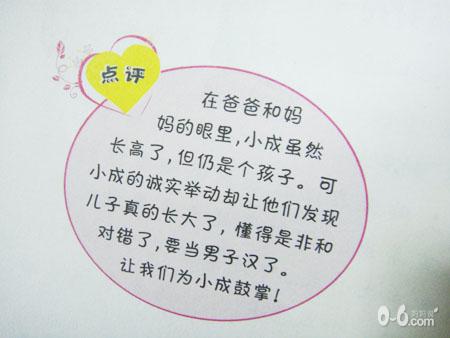 点评
在爸爸和妈
妈的眼里,小成虽然
长高了,但仍是个孩子。可
小成的诚实举动却让他们发现
儿子真的长大了,懂得是非和
对错了,要当男子汉了。
让我们为小成鼓掌!
0-6
.com